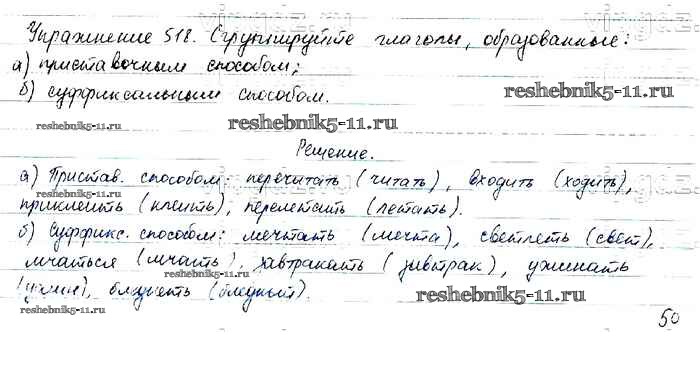 Упражнение 518. Сгруппируйте глаголы, образованные:
а) приставочным способом;
б) суффиксальным способом.
reshebnik5-11.ru
reshebnik5-11.ru
reshebnik5-11.ru
Решение.
а) Пристав. способом: перечитать (читать), входить (ходить),
reshebnik5-11.ru
приклеить (клеить), перелетать (летать).
б) Суффикс. способом: мечтать (мечта), светлеть (свет),
мчаться (мчать), завтракать (завтрак), ужинать
reshebnik5-11.ru
(ужин), бледнеть (бледный).
reshebnik5-11.ru
reshebnik5-11.ru
50